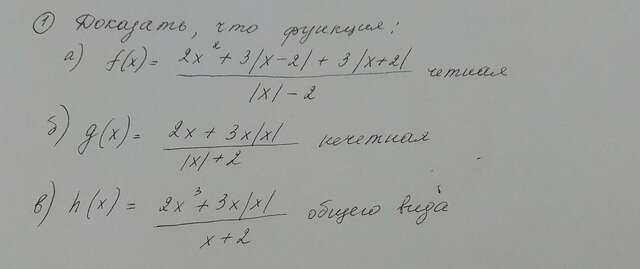 ① Доказать, что функция:
а) f(x) = (2x² + 3|x-2| + 3|x+2|) / (|x| - 2) четная
б) g(x) = (2x + 3x|x|) / (|x| + 2) нечетная
в) h(x) = (2x³ + 3x|x|) / (x + 2) общего вида